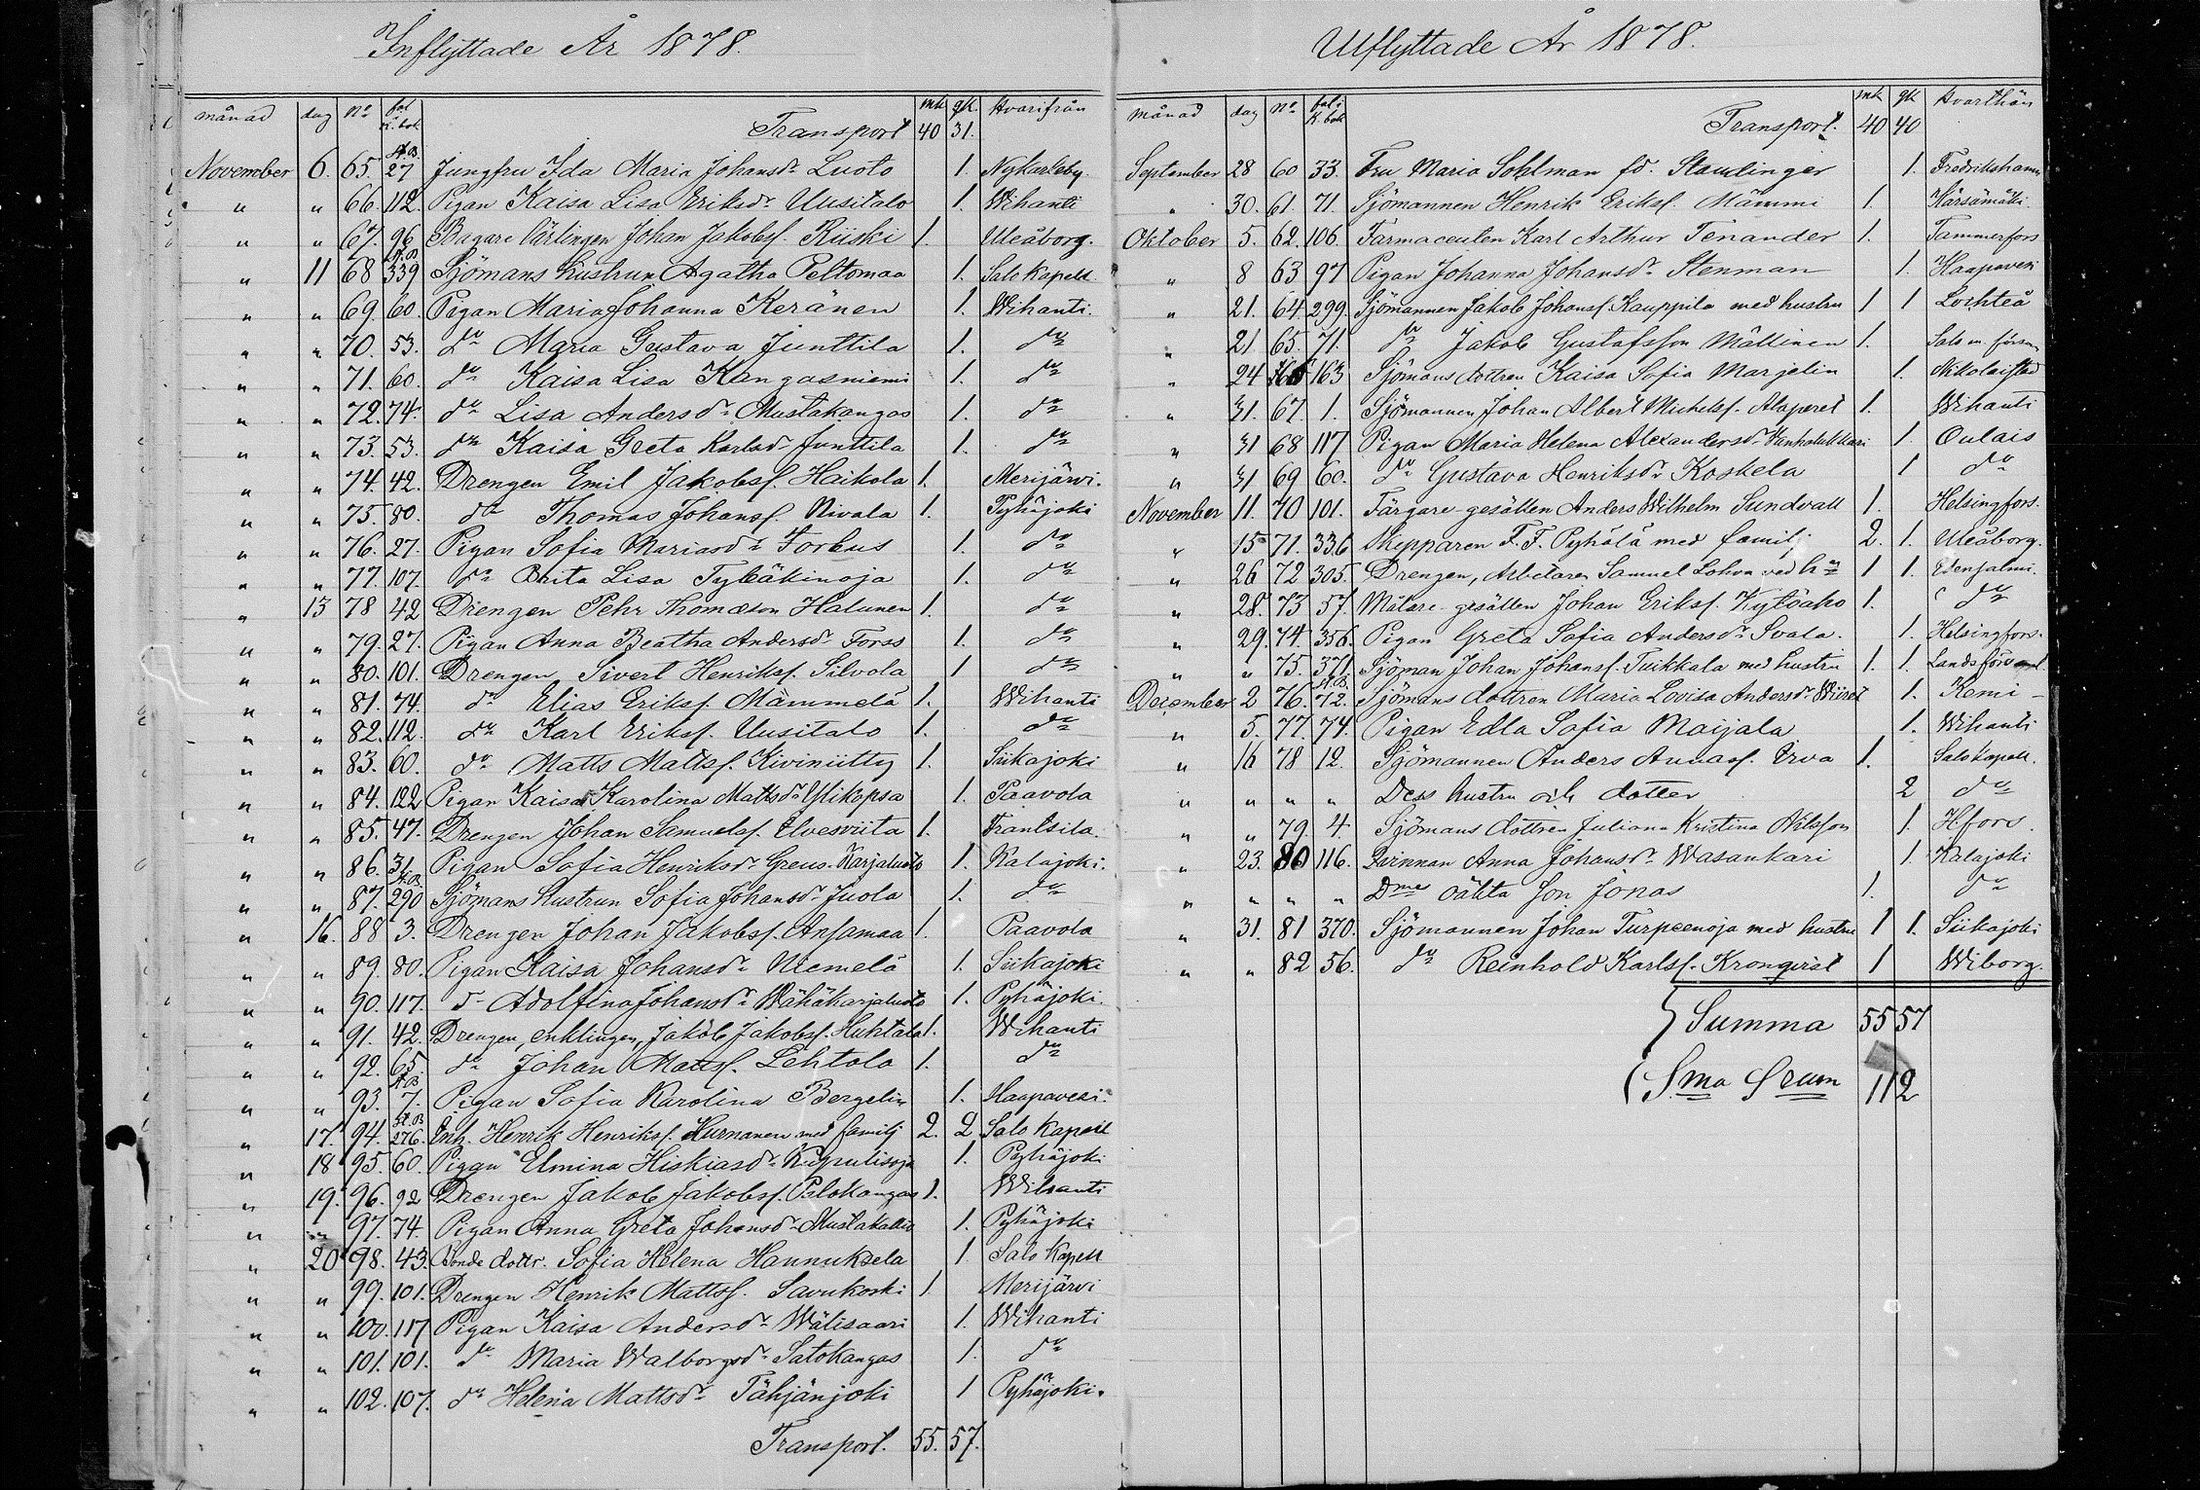 Inflyttade År 1878.
månad dag No fol K. bok mk qk. Hvarifrån
Transport 40 31.
November 6. 65. St.B. 27 Jungfru Ida Maria Johansdr Luoto 1. Nykarleby
" " 66. 112. Pigan Kaisa Lisa Eriksdr Uusitalo 1. Wihanti
" " 67. 96 Bagare Lärlingen Johan Jakobsf. Riiski 1. Uleåborg.
" 11 68 St.B. 339 Sjömans hustrun Agatha Peltomaa 1. Salo kapell
" " 69. 60. Pigan Maria Johanna Keränen 1. Wihanti.
" " 70. 53. do Maria Gustava Junttila 1. do
" " 71. 60. do Kaisa Lisa Kangasniemi 1. do
" " 72. 74. do Lisa Andersdr Mustakangas 1. do
" " 73. 53. do Kaisa Greta Karlsdr Junttila 1. do
" " 74. 42. Drengen Emil Jakobsf. Haikola 1. Merijärvi.
" " 75. 80. do Thomas Johansf. Nivala 1. Pyhäjoki
" " 76. 27. Pigan Sofia Mariasdr Forbus 1. do
" " 77. 107. do Brita Lisa Tybäkinoja 1. do
" 13 78 42 Drengen Pehr Thomasson Halunen 1. do
" " 79. 27. Pigan Anna Beatha Andersdr Forss 1. do
" " 80. 101. Drengen Sivert Henriksf. Silvola 1 do
" " 81. 74. do Elias Eriksf. Mämmelä 1. Wihanti
" " 82. 112. do Karl Eriksf. Uusitalo 1. do
" " 83. 60. do Matts Mattsf. Kiviniitty 1. Siikajoki
" " 84. 122 Pigan Kaisa Karolina Mattsdr Ylikopsa 1. Paavola
" " 85. 47. Drengen Johan Samuelsf. Ilvesviita 1. Frantsila.
" " 86. 31. Pigan Sofia Henriksdr Greus-Karjaluoto 1. Kalajoki.
" " 87. St.B. 290 Sjömans hustrun Sofia Johansdr Juola 1. do
" 16. 88 3. Drengen Johan Jakobsf. Ansamaa 1. Paavola
" " 89. 80. Pigan Kaisa Johansdr Niemelä 1. Siikajoki
" " 90. 117. do Adolfina Johansdr Wähäkarjaluoto 1. Pyhäjoki.
" " 91. 42. Drengen, enklingen, Jakob Jakobsf. Huhtala 1. Wihanti
" " 92. 65. do Johan Mattsf. Lehtola 1. do
" " 93. St.B. 7. Pigan Sofia Karolina Bergelin 1. Haapavesi.
" 17. 94. St.B. 276. Enk. Henrik Henriksf. Kurnanen med familj 2. 2 Salo kapell
" 18 95. 60. Pigan Elmina Hiskiasdr 1. Pyhäjoki
" 19. 96. 92 Drengen Jakob Jakobsf. Palokangas 1. Wihanti
" " 97. 74. Pigan Anna Greta Johansdr Mustakallio 1. Pyhäjoki
" 20 98. 43. Bonde dottr. Sofia Helena Hannuksela 1. Salo Kapell
" " 99. 101. Drengen Henrik Mattsf. Savukoski 1 Merijärvi
" " 100. 117 Pigan Kaisa Andersdr Wälisaari 1. Wihanti
" " 101. 101. do Maria Walborgsdr Satokangas 1. do
" " 102. 107. do Helena Mattsdr Tähjänjoki 1 Pyhäjoki.
Transport. 55. 57.
Utflyttade År 1878.
månad dag No fol i K. bok mk qk Hvarthän
Transport. 40 40
September 28 60 33. Fru Maria Sohlman fd. Staudinger 1. Fredrikshamn
" 30. 61. 71. Sjömannen Henrik Eriksf. Mämmi 1. Kärsämäki
Oktober 5. 62. 106. Farmaceuten Karl Arthur Tenander 1. Tammerfors
" 8 63 97 Pigan Johanna Johansdr Stenman 1. Haapavesi
" 21. 64. 299. Sjömannen Jakob Johansf. Kauppila med hustru 1 1 Lochteå
" 21 65. 71. do Jakob Gustafsson Mällinen 1. Salo m. förs.
" 24 66 163 Sjömans dottren Kaisa Sofia Marjelin 1. Nikolaistad
" 31. 67. 1. Sjömannen Johan Albert Michelsf. Alaperet 1. Wihanti
" 31 68 117 Pigan Maria Helena Alexandersdr 1. Oulais
" 31 69 60. do Gustava Henriksdr Koskela 1 do
November 11. 70 101. Färgare-gesällen Anders Wilhelm Sundvall 1. Helsingfors.
" 15 71. 336 Skepparen F. F. Pyhälä med familj. 2. 1. Uleåborg.
" 26 72 305. Drengen, Arbetaren Samuel Lohva med hu 1 1. Idensalmi.
" 28. 73 57. Målare-gesällen Johan Eriksf. Kytöaho 1. do
" 29. 74. 356. Pigan Greta Sofia Andersdr Svala. 1. Helsingfors.
" " 75. 371 Sjöman Johan Johansf. Tuikkala med hustru 1. 1. Landsförsaml.
December 2 76. St.B. 72. Sjömans dottren Maria Lovisa Andersdr Wiiret 1. Kemi -
" 5. 77. 74. Pigan Edla Sofia Maijala 1. Wihanti
" 16 78 12. Sjömannen Anders Annasf. Erva 1. Salo kapell.
" " " " Dess hustru och dotter 2 do
" " 79. 4. Sjömans dottren Juliana Kristina Nilsson 1. H.fors.
" 23. 80 116. Qvinnan Anna Johansdr Wasankari 1. Kalajoki
" " " " Dmes oäkta son Jonas 1. do
" 31. 81 370. Sjömannen Johan Turpeenoja med hustru 1 1. Siikajoki
" " 82 56. do Reinhold Karlsf. Kronqvist 1 Wiborg.
Summa 55 57
Sma Srum 112